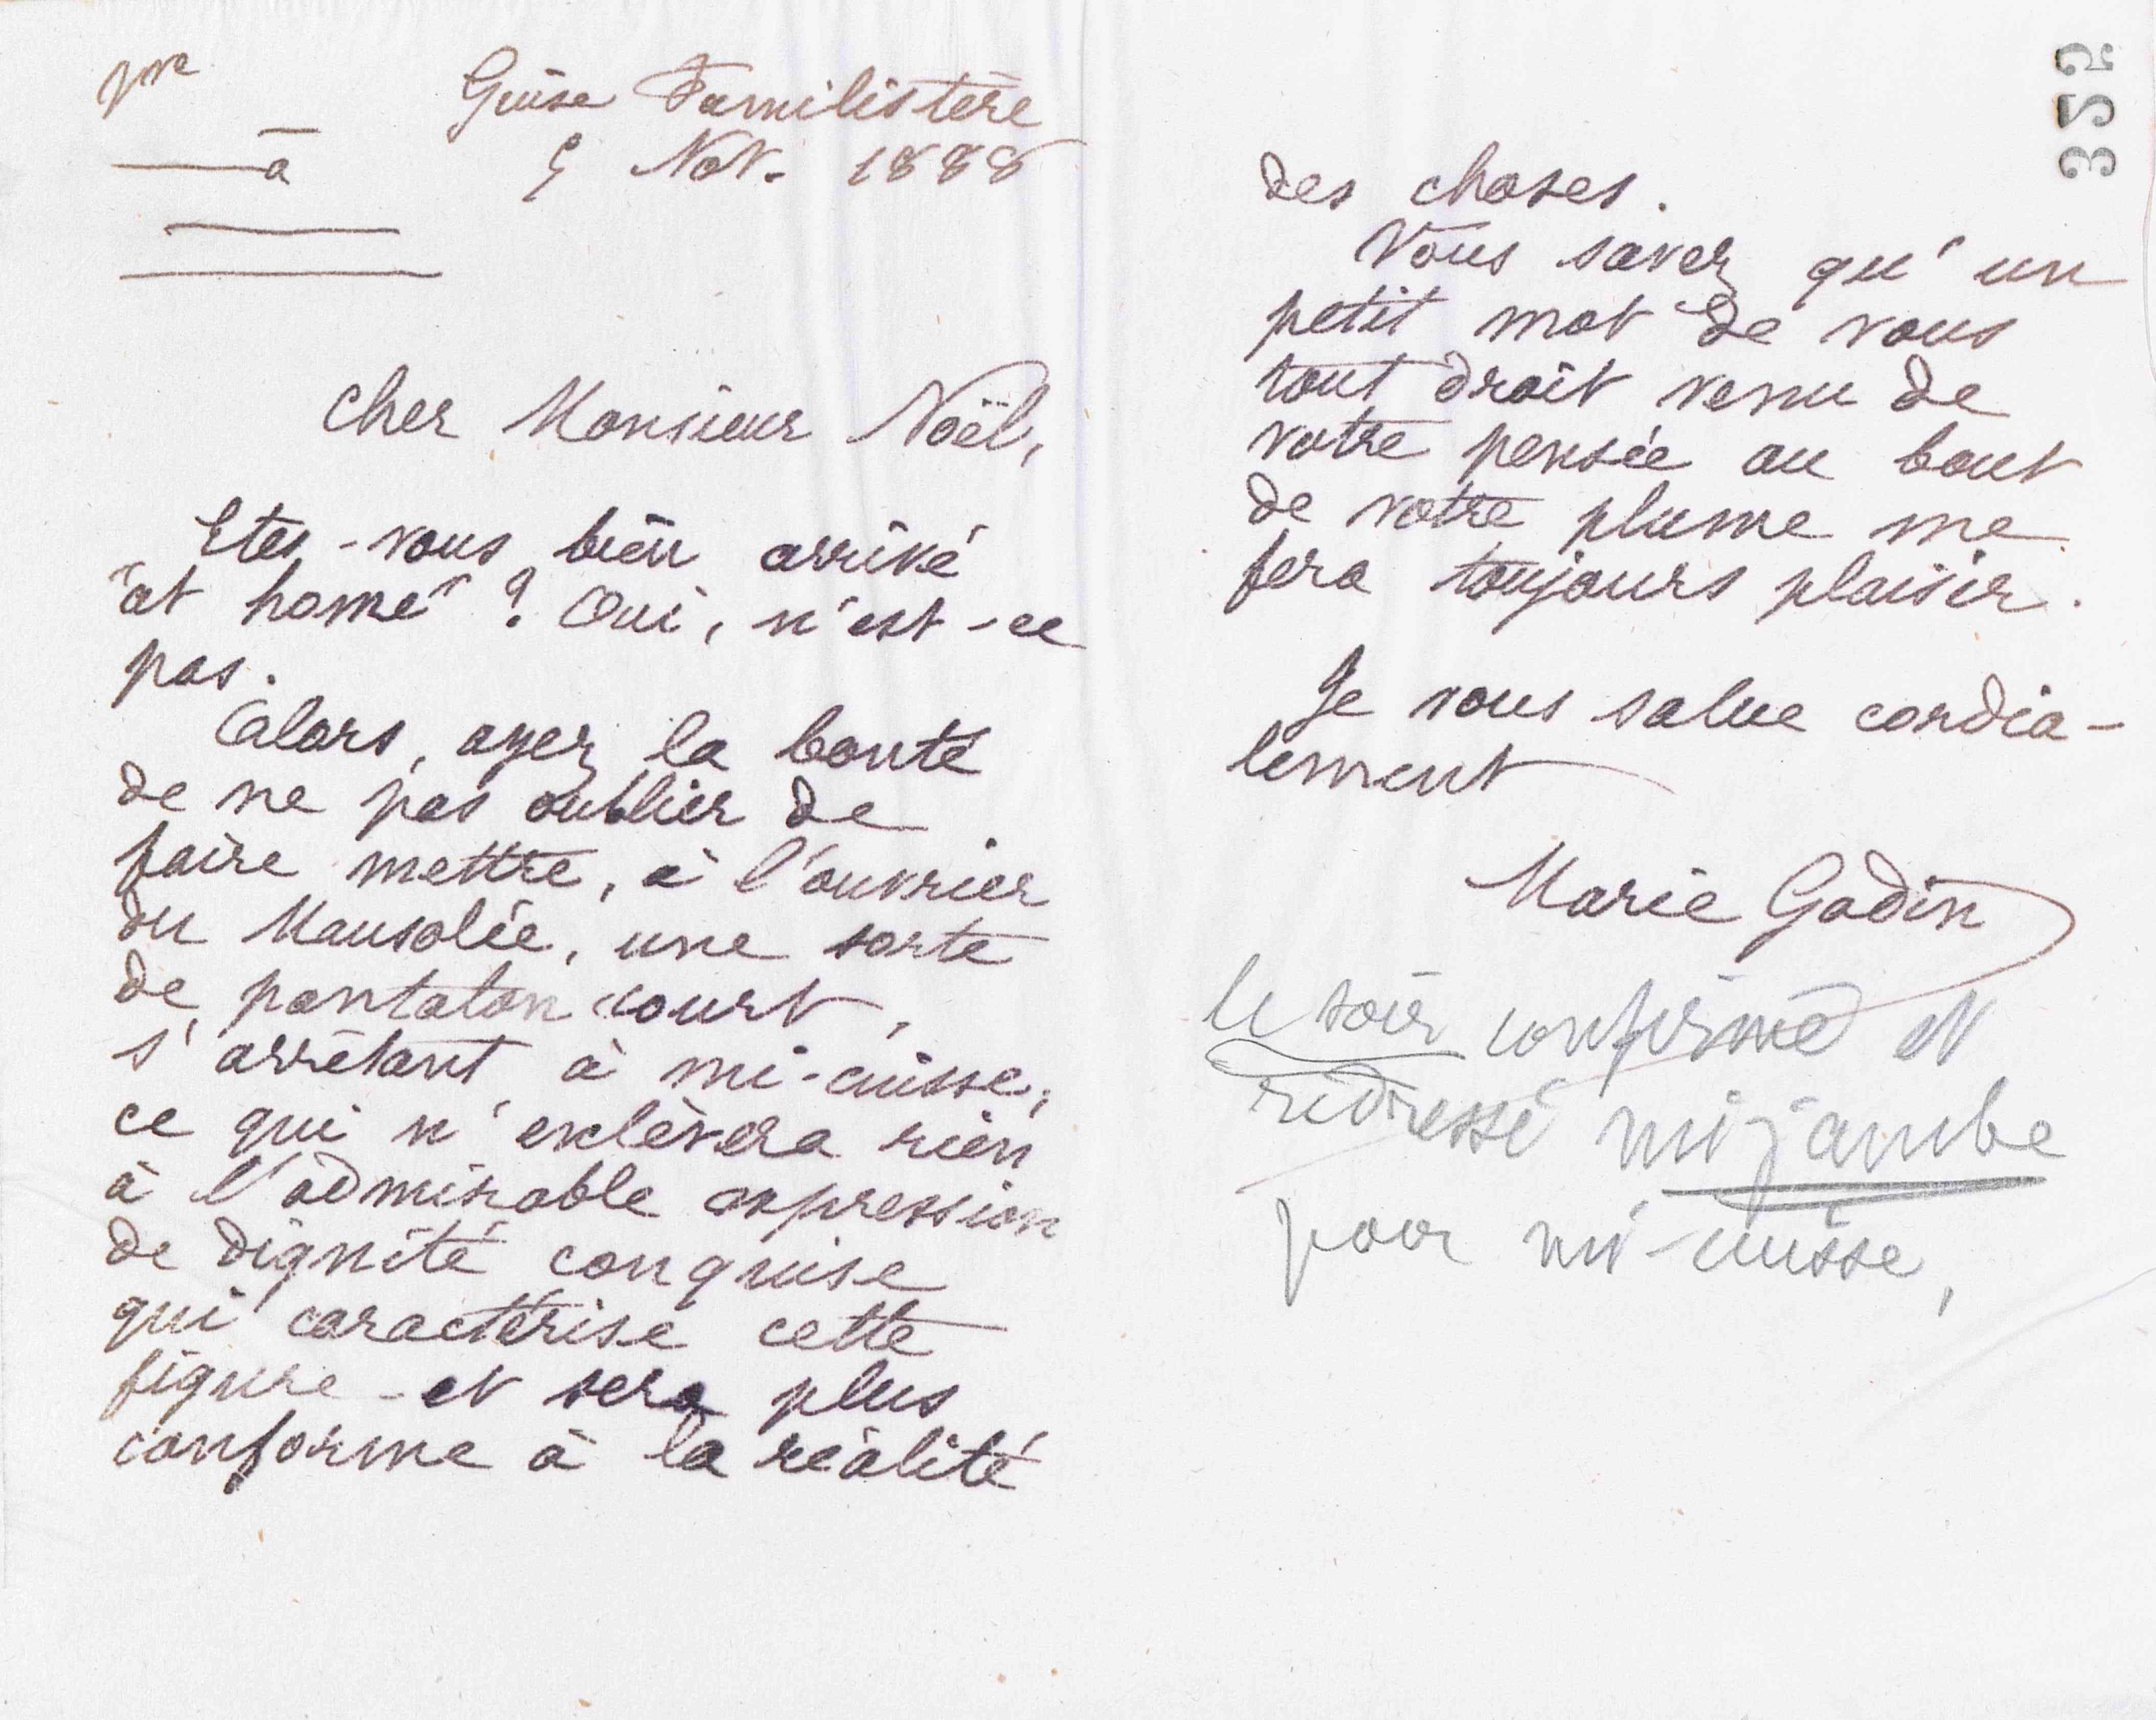 Guise Familistère
9 Nov. 1888
à
Cher Monsieur Noël,
Etes-vous bien arrivé
"at home" ? Oui, n'est-ce
pas.
Alors, ayez la bonté
de ne pas oublier de
faire mettre, à l'ouvrier
du Mausolée, une sorte
de pantalon court,
s'arrêtant à mi-cuisse,
ce qui n'enlèvera rien
à l'admirable expression
de dignité conquise
qui caractérise cette
figure - et sera plus
conforme à la réalité
325
des choses.
Vous savez qu'un
petit mot de vous
tout droit venu de
votre pensée au bout
de votre plume me
fera toujours plaisir.
Je vous salue cordia-
lement
Marie Godin
le soir confirmé et
redressé mi jambe
pour mi-cuisse,